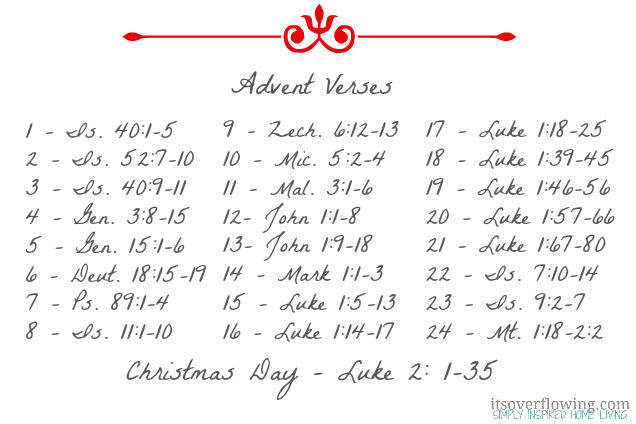 Advent Verses
1 - Is. 40:1-5
2 - Is. 52:7-10
3 - Is. 40:9-11
4 - Gen. 3:8-15
5 - Gen. 15:1-6
6 - Deut. 18:15-19
7 - Ps. 89:1-4
8 - Is. 11:1-10
9 - Zech. 6:12-13
10 - Mic. 5:2-4
11 - Mal. 3:1-6
12- John 1:1-8
13- John 1:9-18
14 - Mark 1:1-3
15 - Luke 1:5-13
16 - Luke 1:14-17
17 - Luke 1:18-25
18 - Luke 1:39-45
19 - Luke 1:46-56
20 - Luke 1:57-66
21 - Luke 1:67-80
22 - Is. 7:10-14
23 - Is. 9:2-7
24 - Mt. 1:18-2:2
Christmas Day - Luke 2: 1-35
itsoverflowing.com
SIMPLY INSPIRED HOME LIVING